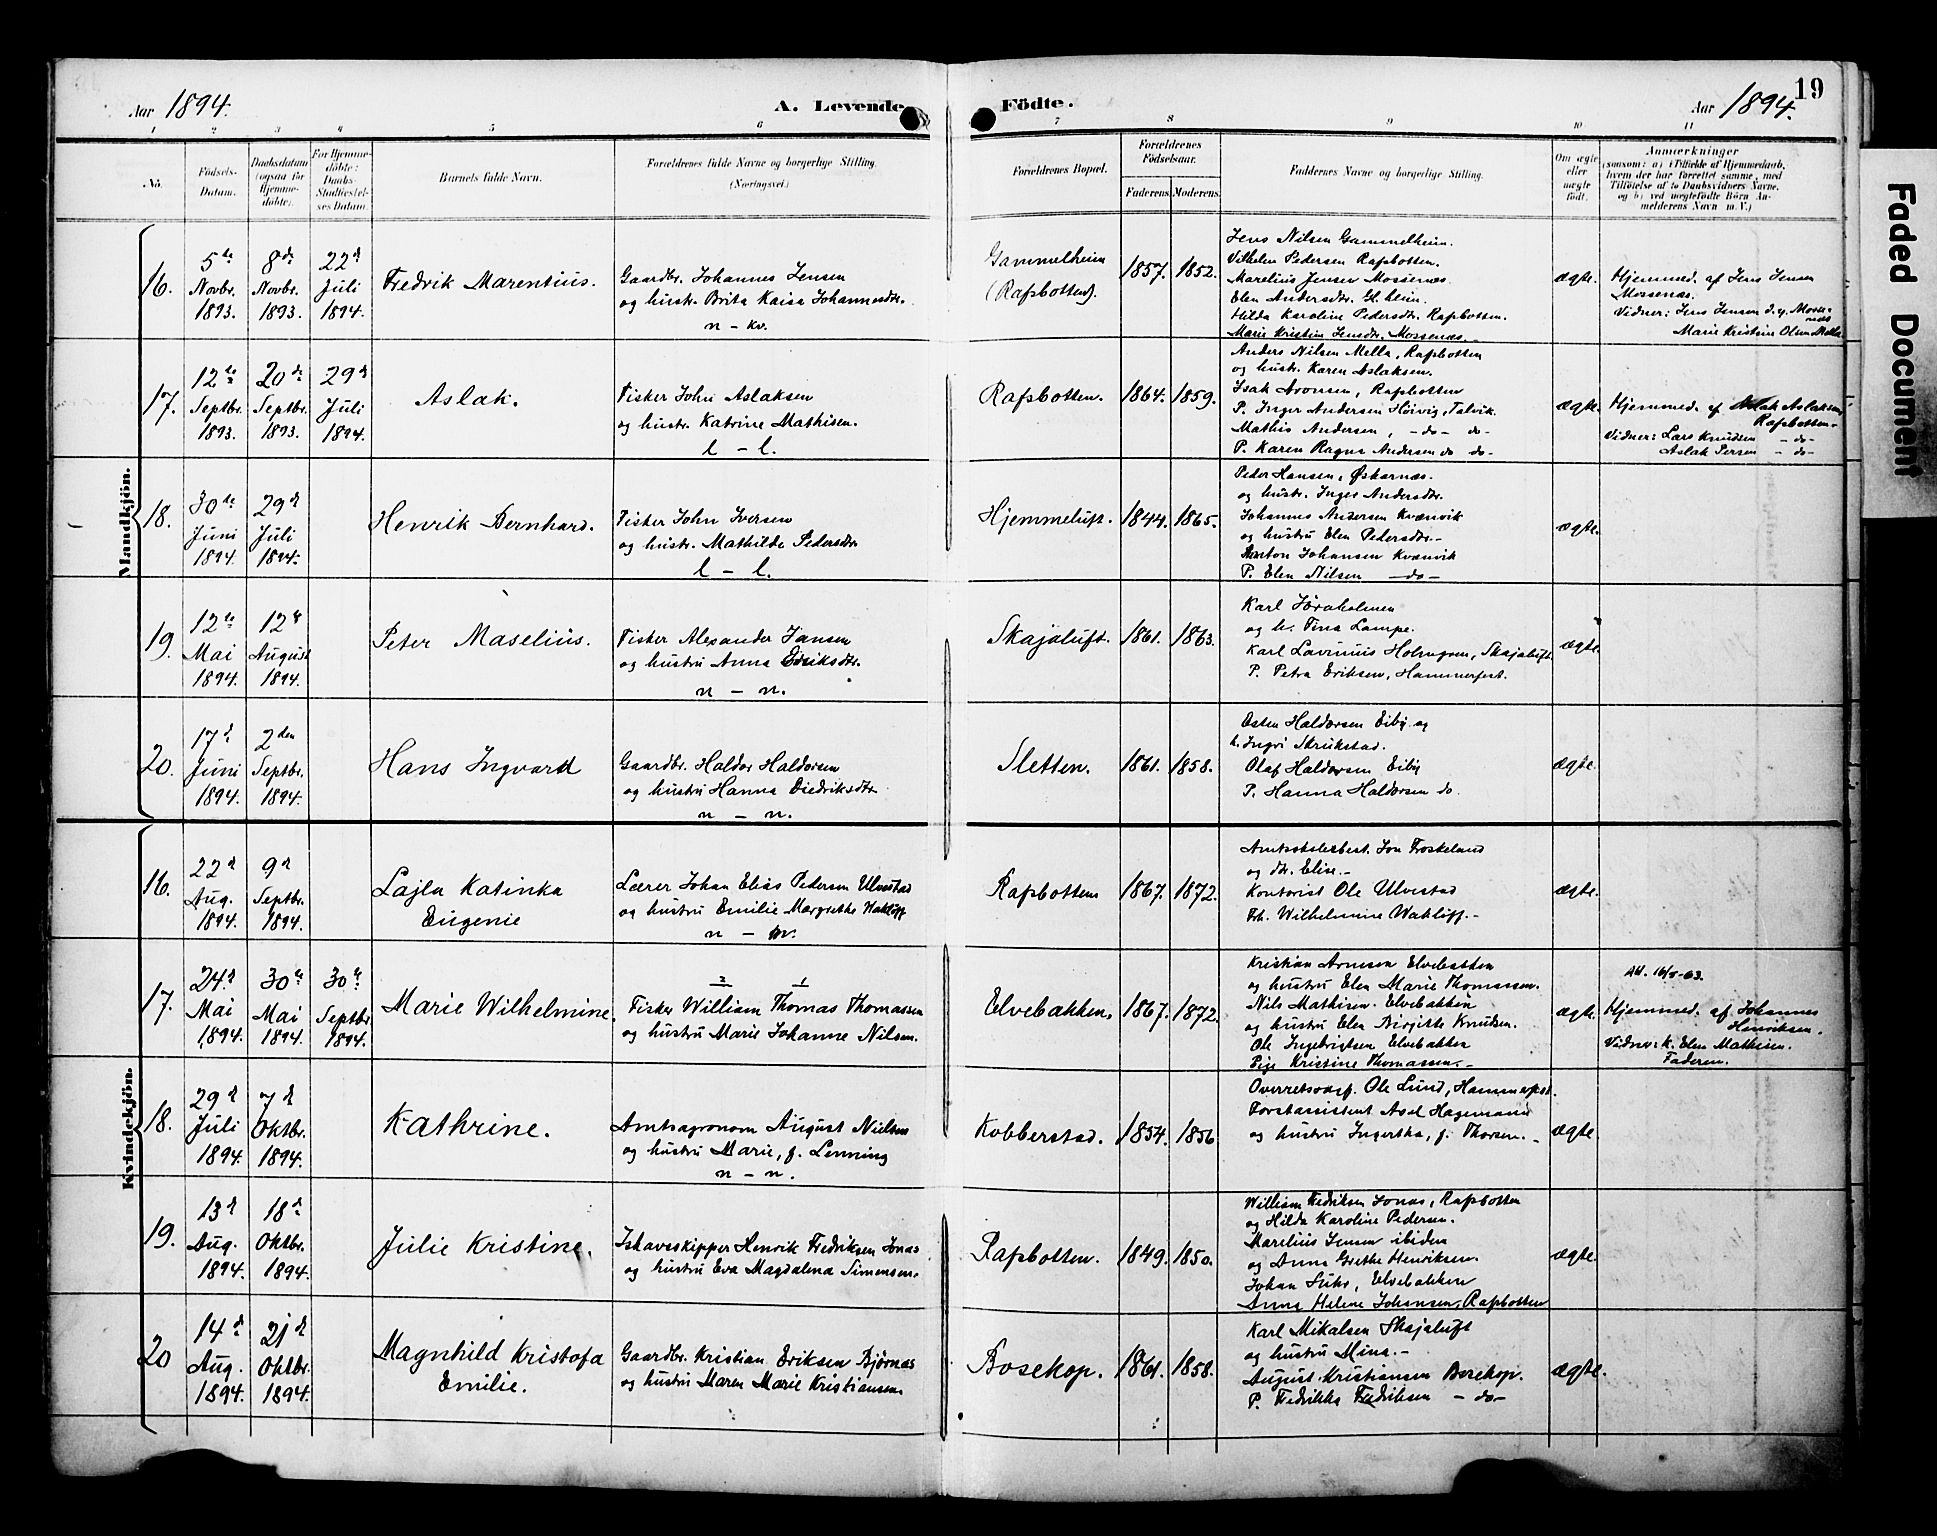 Aar 1894.
A. Levende Födte.
Aar 1894.
19
Faded Document
1 2 3 4 5 6 7 8 9 10 11
No.
Födsels-
Datum.
Daabsdatum
(ogsaa for
Hjemme-
döbte).
For Hjemme-
döbte:
Daabs-
Stadfæstel-
ses Datum.
Barnets fulde Navn.
Forældrenes fulde Navne og borgerlige Stilling.
(Næringsvei.)
Forældrenes Bopæl.
Forældrenes
Födselsaar.
Faderens. Moderens.
Faddernes Navne og borgerlige Stilling.
Om ægte
eller
uægte
födt.
Anmærkninger
(saasom: a) i Tilfælde af Hjemmedaab,
hvem der har forrettet samme, med
Tilföielse af to Daabsvidners Navne,
og b) ved uægtefödte Börn An-
melderens Navn m. V.)
Mandkjön.
16.
5te
Novbr.
1893.
8de
Novbr.
1893.
22d
Juli
1894.
Fredrik Marentius.
Gaardbr. Johannes Jensen
og hustr. Brita Kaisa Johannesdtr.
n - kv.
Gammelheim
(Rafsbotten).
1857. 1852.
Jens Nilsen Gammelheim.
Vilhelm Pedersen Rafsbotten.
Marelius Jensen Mossenæs.
Elen Andersdtr. Gl. heim.
Hilda Karoline Pedersdtr. Rafsbotten.
Marie Kristin Jensdtr. Mossenæs.
ægte.
Hjemmed. af Jens Jensen
Mossenæs.
Vidner: Jens Jensen d. y. Mosse-
næs
Marie Kristine Olsen Mella
17.
12te
Septbr.
1893.
20de
Septbr.
1893.
29d
Juli
1894.
Aslak.
Fisker John Aslaksen
og hustr. Katrine Mathisen.
l - l.
Rafsbotten.
1864. 1859.
Anders Nilsen Mella, Rafsbotten
og hustr. Karen Aslaksen.
Isak Aronsen, Rafsbotten
P. Inger Andersen Høivig, Talvik.
Mathis Andersen, -do- do-
P. Karen Ragna Andersen do do-
ægte.
Hjemmed. af Aslak Aslaksen,
Rafsbotten-
Vidner: Lars Knudsen -do-
Aslak Persen -do-
18.
30te
Juni
1894.
29d
Juli
1894.
Henrik Bernhard.
Fisker John Iversen
og hustr. Mathilde Pedersdtr
l - l.
Hjemmeluft.
1844. 1865.
Peder Hansen, Øskarnæs.
og hustr. Inger Andersdtr.
Johannes Andersen Kvænvik
og hustru Elen Pedersdtr.-
Anton Johansen Kvænvik
P. Elen Nilsen -do-
ægte.
19.
12te
Mai
1894.
12te
August
1894.
Peter Maselius.
Fisker Alexander Jansen
og hustru Anna Eriksdtr.
n - n.
Skajaluft.
1861. 1863.
Karl Jöraholmen
og h. Tina Lampe.
Karl Lavinius Holmgren, Skajaluft
P. Petra Eriksen, Hammerfest.
ægte.
20.
17d
Juni
1894.
2den
Septbr.
1894.
Hans Ingvard
Gaardbr. Haldor Haldorsen
og hustru Hanna Diedriksdtr.
n - n.
Sletten.
1861. 1858.
Osten Haldorsen Eiby og
h. Ingri Skrukstad.
Olaf Haldorsen Eiby
P. Hanna Haldorsen do.
ægte.
Kvindekjön.
16.
22d
Aug.
1894.
9d
Septbr.
1894.
Lajla Katinka
Eugenie
Lærer Johan Elias Pedersen Ulvestad
og hustru Emilie Margrethe Wakløff
n -
Rafsbotten
1867. 1872.
Jon Froskeland
og Elise.-
Kontorist Ole Ulvestad
Frk. Wilhelmine Wakløff.-
ægte.
17.
24d
Mai
1894.
30te
Mai
1894.
30te
Septbr.
1894.
Marie Wilhelmine.
2 1
Fisker William Thomas Thomassen
og hustru Marie Johanne Nilsen.
Elvebakken.
1867. 1872.
Kristian Arnesen Elvebakken
og hustru Elen Marie Thomassen.
Nils Mathisen. Elvebakken
og hustru Elen Birgitte Knudsen.
Ole Ingebrigtsen Elvebakken
Pige Kristine Thomassen.-
ægte.
Att. 16/5-63.
Hjemmed. af Johannes
Henriksen.
Vidner: K. Elen Mathisen.
Faderen.
18.
29d
Juli
1894.
7d
Oktbr.
1894.
Kathrine.
Amtsagronom August Nielsen
og hustru Marie, f. Lenning
n - n.
Kobberstad.
1854. 1856
Overretssagf. Ole Lund, Hammerfest.
Forstassistent Axel Hagemann
og hustru Ingertha, f. Thorsen.-
ægte.
19.
13d
Aug.
1894.
18de
Oktbr.
1894.
Julie Kristine.
Ishavsskipper Henrik Fredriksen Jonas
og hustru Eva Magdalena Simensen.
Rafsbotten.
1849. 1850.
William Fredriksen Jonas, Rafsbotten
og Hilda Karoline Pedersen.
Marelius Jensen ibidem
og Anna Grethe Henriksen.
Johan Suhr, Elvebakken
Anna Helene Johansen, Rafsbotten
ægte.
20
14d
Aug.
1894.
21d
Oktbr.
1894.
Magnhild Kristofa
Emilie.
Gaardbr. Kristian Eriksen Bjørnæs
og hustru Maren Marie Kristiansen.
Bosekop.
1861. 1858.
Karl Mikalsen Skajaluft
og hustru Mina.-
August Kristiansen Bosekop.
P. Fredrikka Fredriksen -do-
ægte.